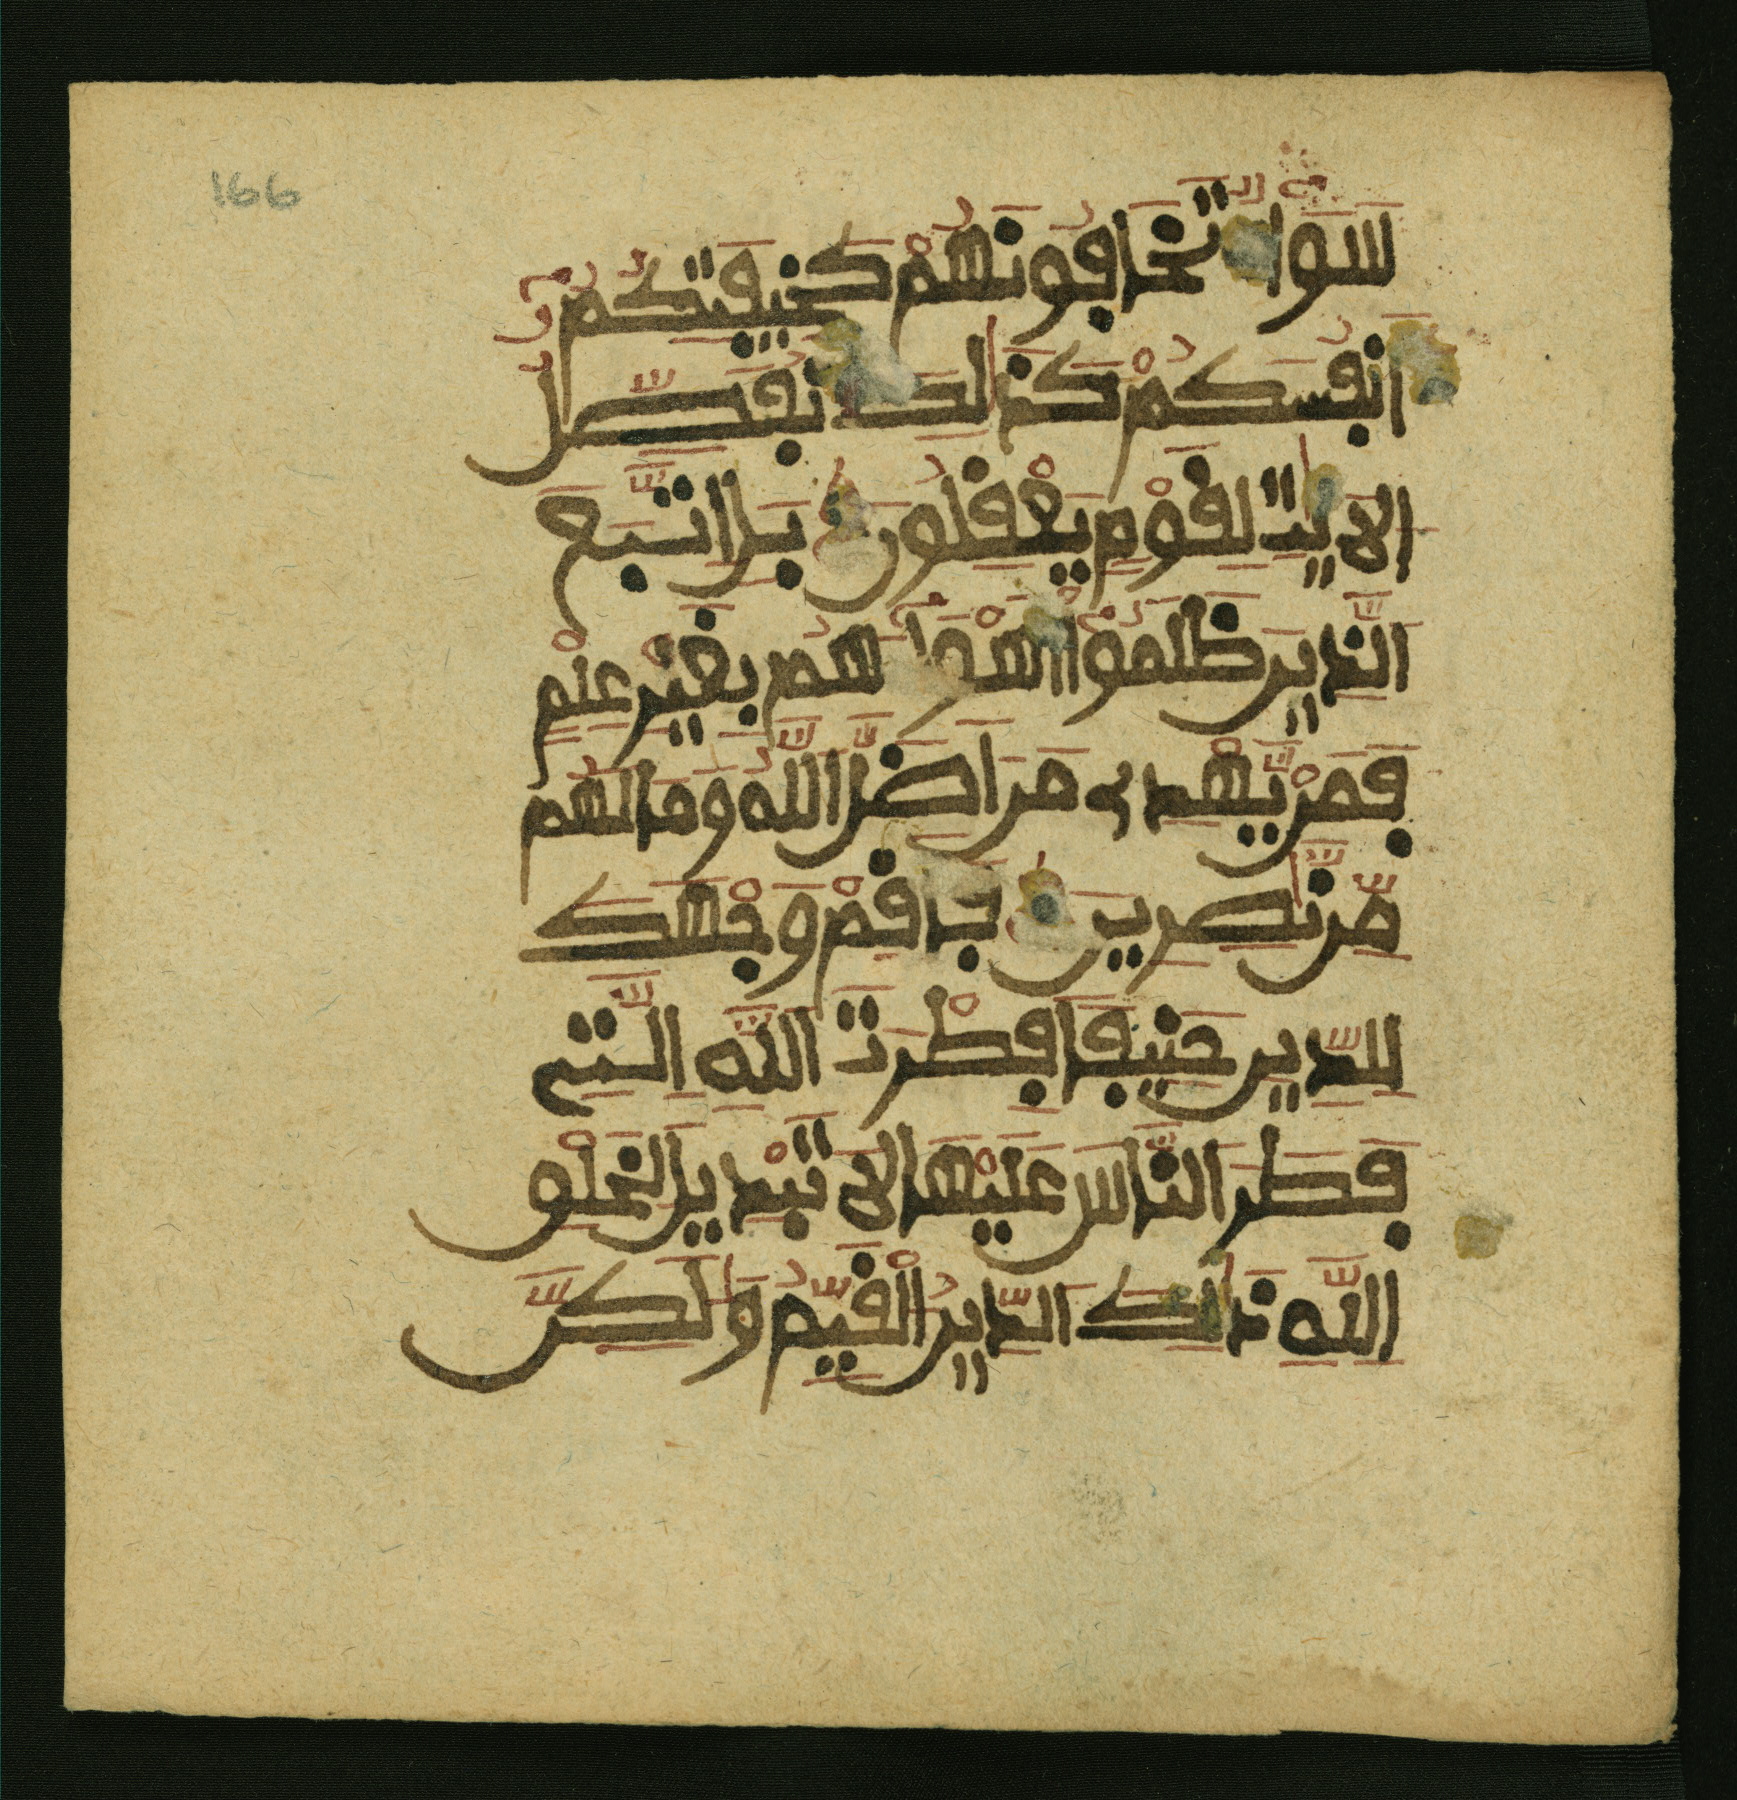 166
سَوَآءٌ تَخَافُونَهُمْ كَخِيفَتِكُمُۥٓ
أَنفُسَكُمْ كَذَٰلِكَ نُفَصِّلُ
الَايَٰتِ لِقَوْمٍ يَعْقِلُونَ بَلِ اتَّبَعَ
الَّذِينَ ظَلَمُوٓا أَهْوَآءَهُم بِغَيْرِ عِلْمٍ
فَمَنْ يَّهْدِي مَنَ اَضَلَّ اللَّهُ وَمَا لَهُم
مِّن نَّٰصِرِينَ فَأَقِمْ وَجْهَكَ
لِلدِّينِ حَنِيفًا فِطْرَتَ اللَّهِ الَّتِي
فَطَرَ النَّاسَ عَلَيْهَا لَا تَبْدِيلَ لِخَلْقِ
اللَّهِ ذَٰلِكَ الدِّينُ الْقَيِّمُ وَلَٰكِنَّ